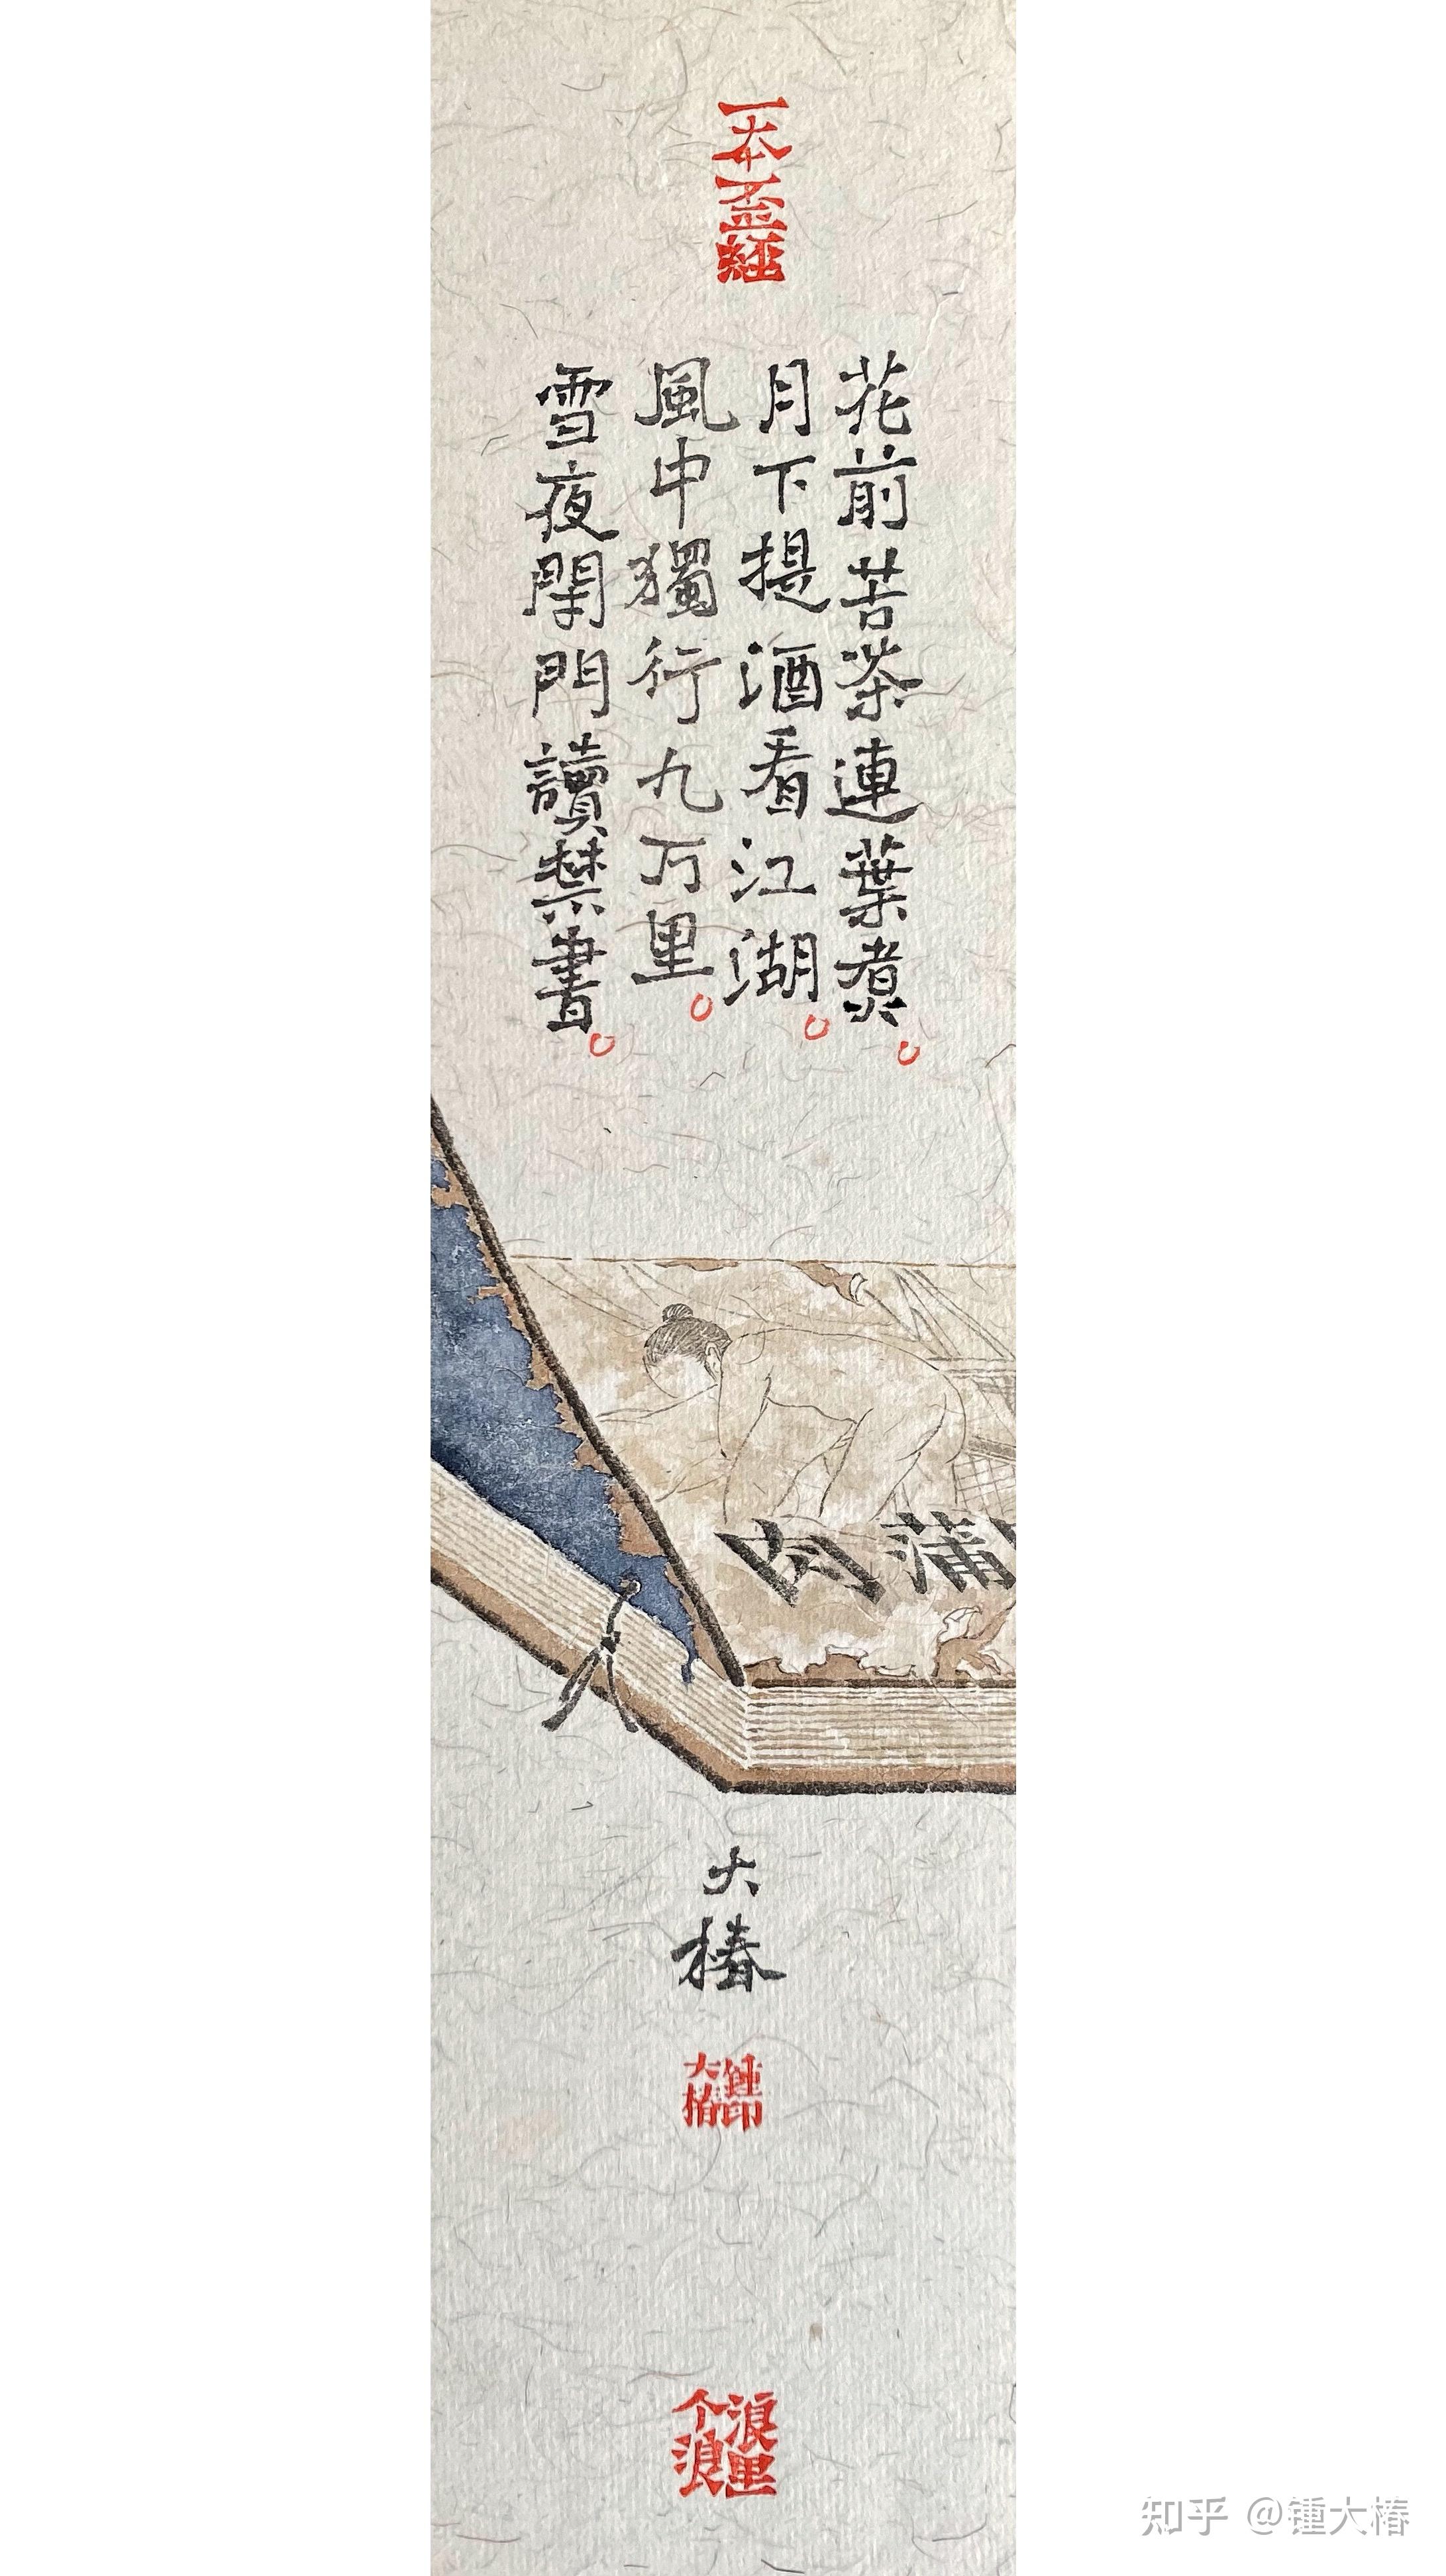 一本歪經
花前苦茶連葉煮。
月下提酒看江湖。
風中獨行九万里。
雪夜閉門讀禁書。
肉蒲
大椿
鍾印
大椿
浪里
个浪
知乎 @锺大椿